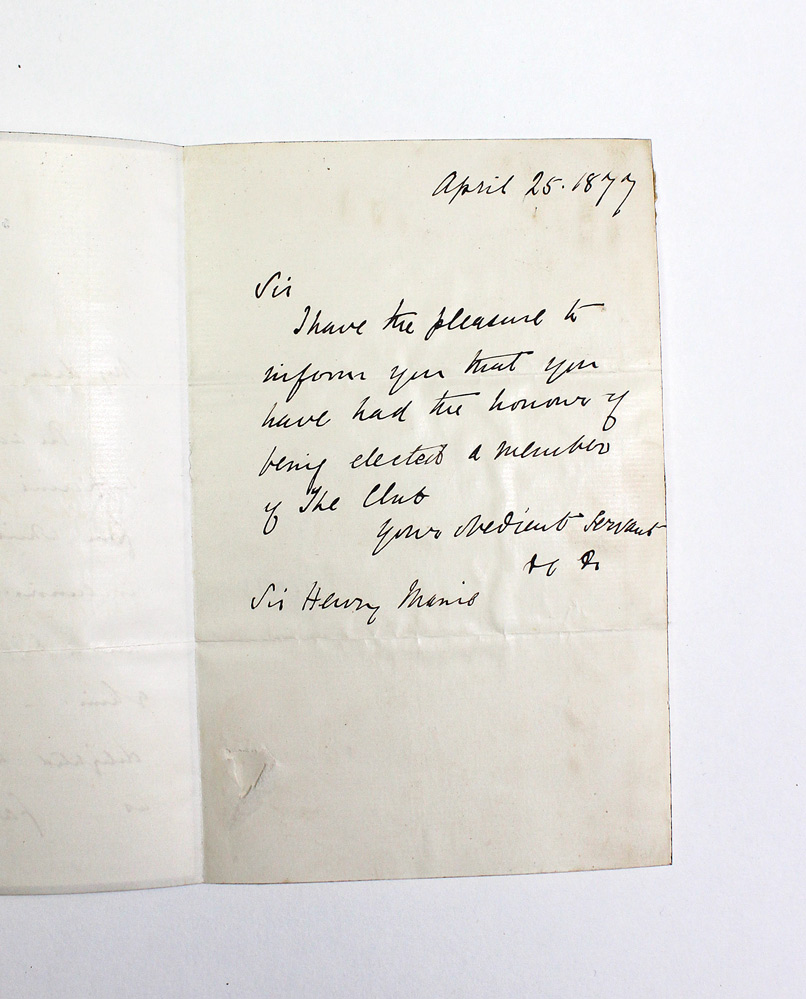 April 25. 1877
Sir
I have the pleasure to
inform you that you
have had the honour of
being elected a member
of The Club
Your obedient Servant
&c &c
Sir Henry